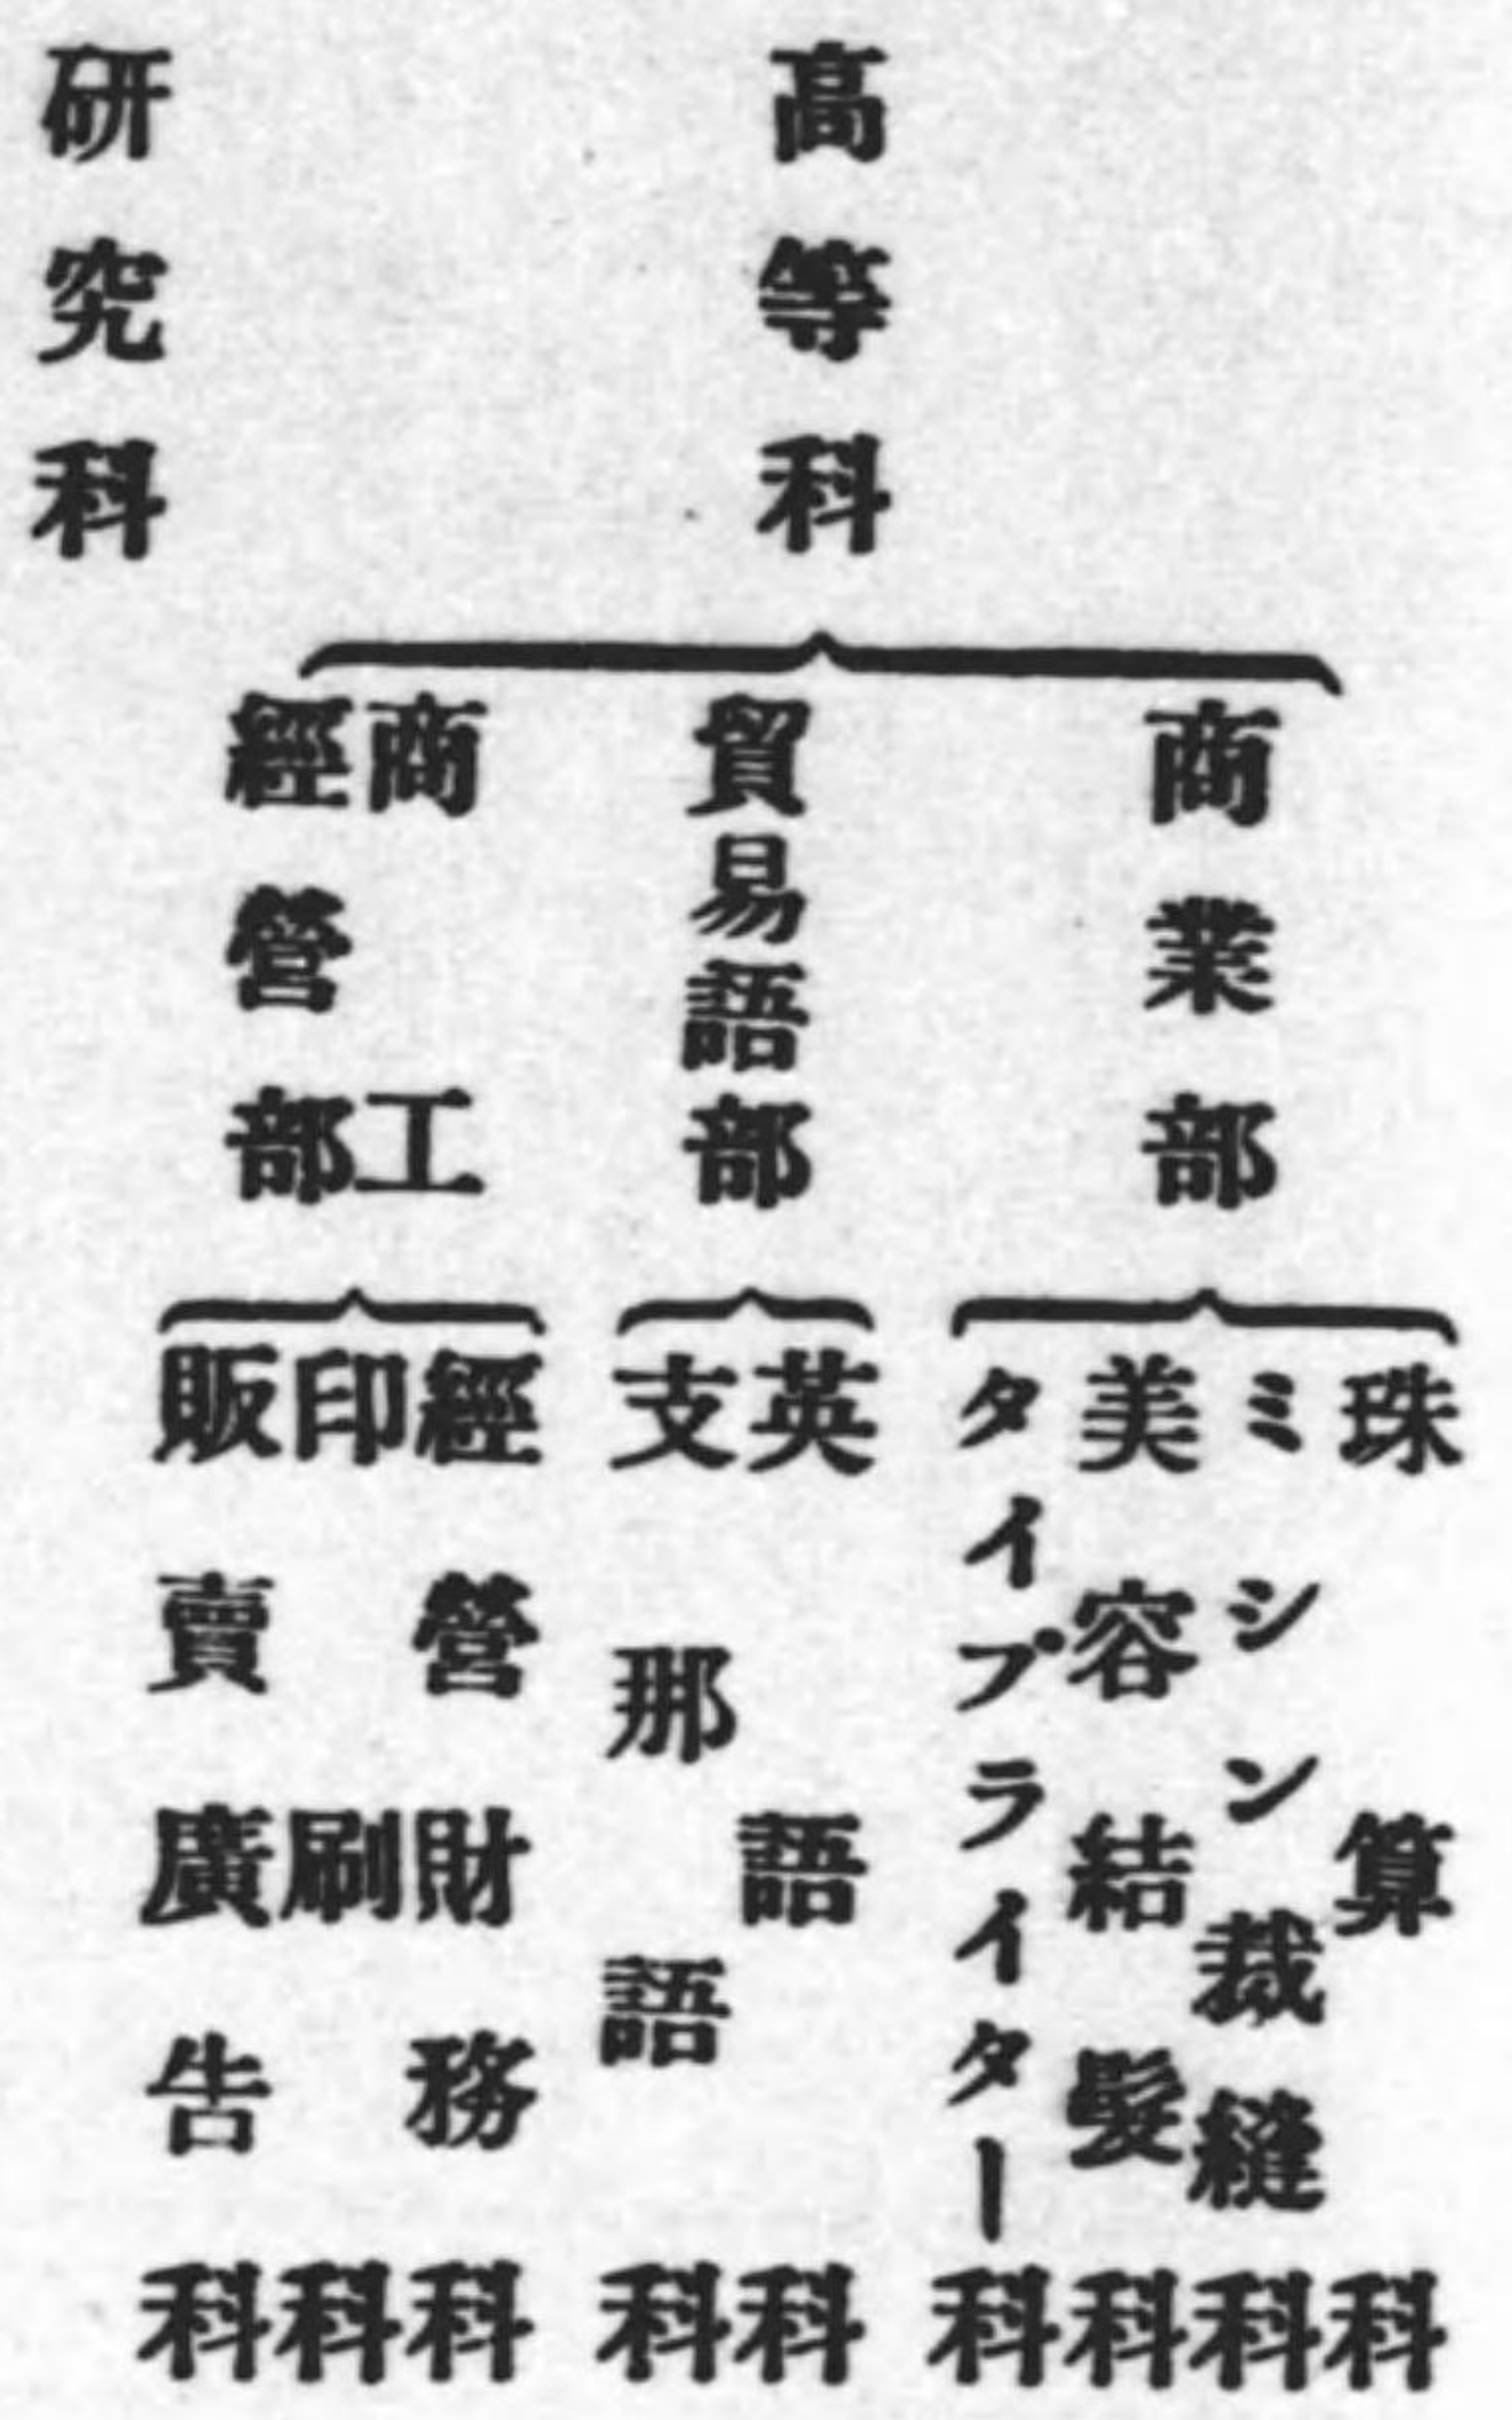 高等科
商業部
珠算科
ミシン裁縫科
美容結髮科
タイプライター科
貿易語部
英語科
支那語科
商工
經營部
經營財務科
印刷科
販賣廣告科
研究科